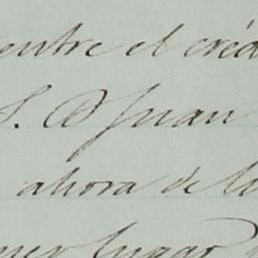 entre el créd
S. D Juan
ahora de lu
mer lugar